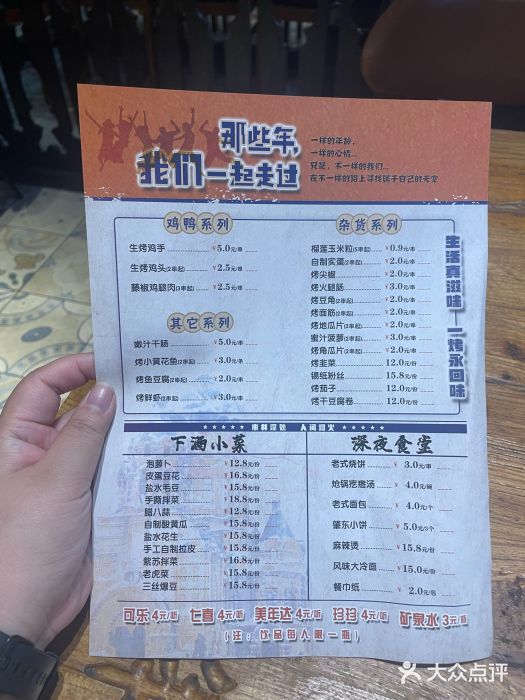 那些年,
我们一起走过
一样的年龄,
一样的心情…
只是,不一样的我们…
在不一样的路上寻找属于自己的天空
鸡鸭系列
生烤鸡手 ¥5.0元/串
生烤鸡头(2串起) ¥2.5元/串
藤椒鸡腿肉(3串起) ¥2.5元/串
其它系列
嫩汁干肠 ¥5.0元/串
烤小黄花鱼(2串起) ¥3.0元/条
烤鱼豆腐(2串起) ¥2.0元/串
烤鲜虾(2串起) ¥3.0元/串
杂货系列
榴莲玉米粒(5串起) ¥0.9元/串
自制实蛋(2串起) ¥2.0元/串
烤尖椒 ¥2.0元/串
烤火腿肠 ¥3.0元/串
烤豆角(2串起) ¥2.0元/串
烤面筋(2串起) ¥2.0元/串
烤地瓜片(2串起) ¥2.0元/串
蜜汁菠萝(2串起) ¥3.0元/串
烤角瓜片(2串起) ¥2.0元/串
烤韭菜 12.0元/份
锡纸粉丝 15.8元/份
烤茄子 12.0元/份
烤干豆腐卷 12.0元/份
生活真滋味 一烤永回味
市井深处 人间烟火
下酒小菜
泡萝卜 ¥12.8元/份
皮蛋豆花 ¥16.8元/份
盐水毛豆 ¥15.8元/份
手撕拌菜 ¥18.8元/份
腊八蒜 ¥12.8元/份
自制酸黄瓜 ¥15.8元/份
盐水花生 ¥15.8元/份
手工自制拉皮 ¥15.8元/份
紫苏拌菜 ¥16.8元/份
老虎菜 ¥15.8元/份
三丝爆豆 ¥15.8元/份
深夜食堂
老式烧饼 ¥3.0元/串
炝锅疙瘩汤 ¥4.0元/碗
老式面包 ¥4.0元/个
肇东小饼 ¥5.0元/3个
麻辣烫 ¥15.8元/份
风味大冷面 ¥15.0元/份
餐巾纸 ¥2.0元/包
可乐 4元/听 七喜 4元/听 美年达 4元/听 珍珍 4元/听 矿泉水 3元/瓶
(注:饮品每人限一瓶)
大众点评